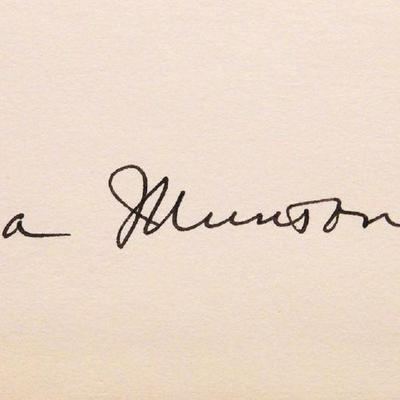 a Munson